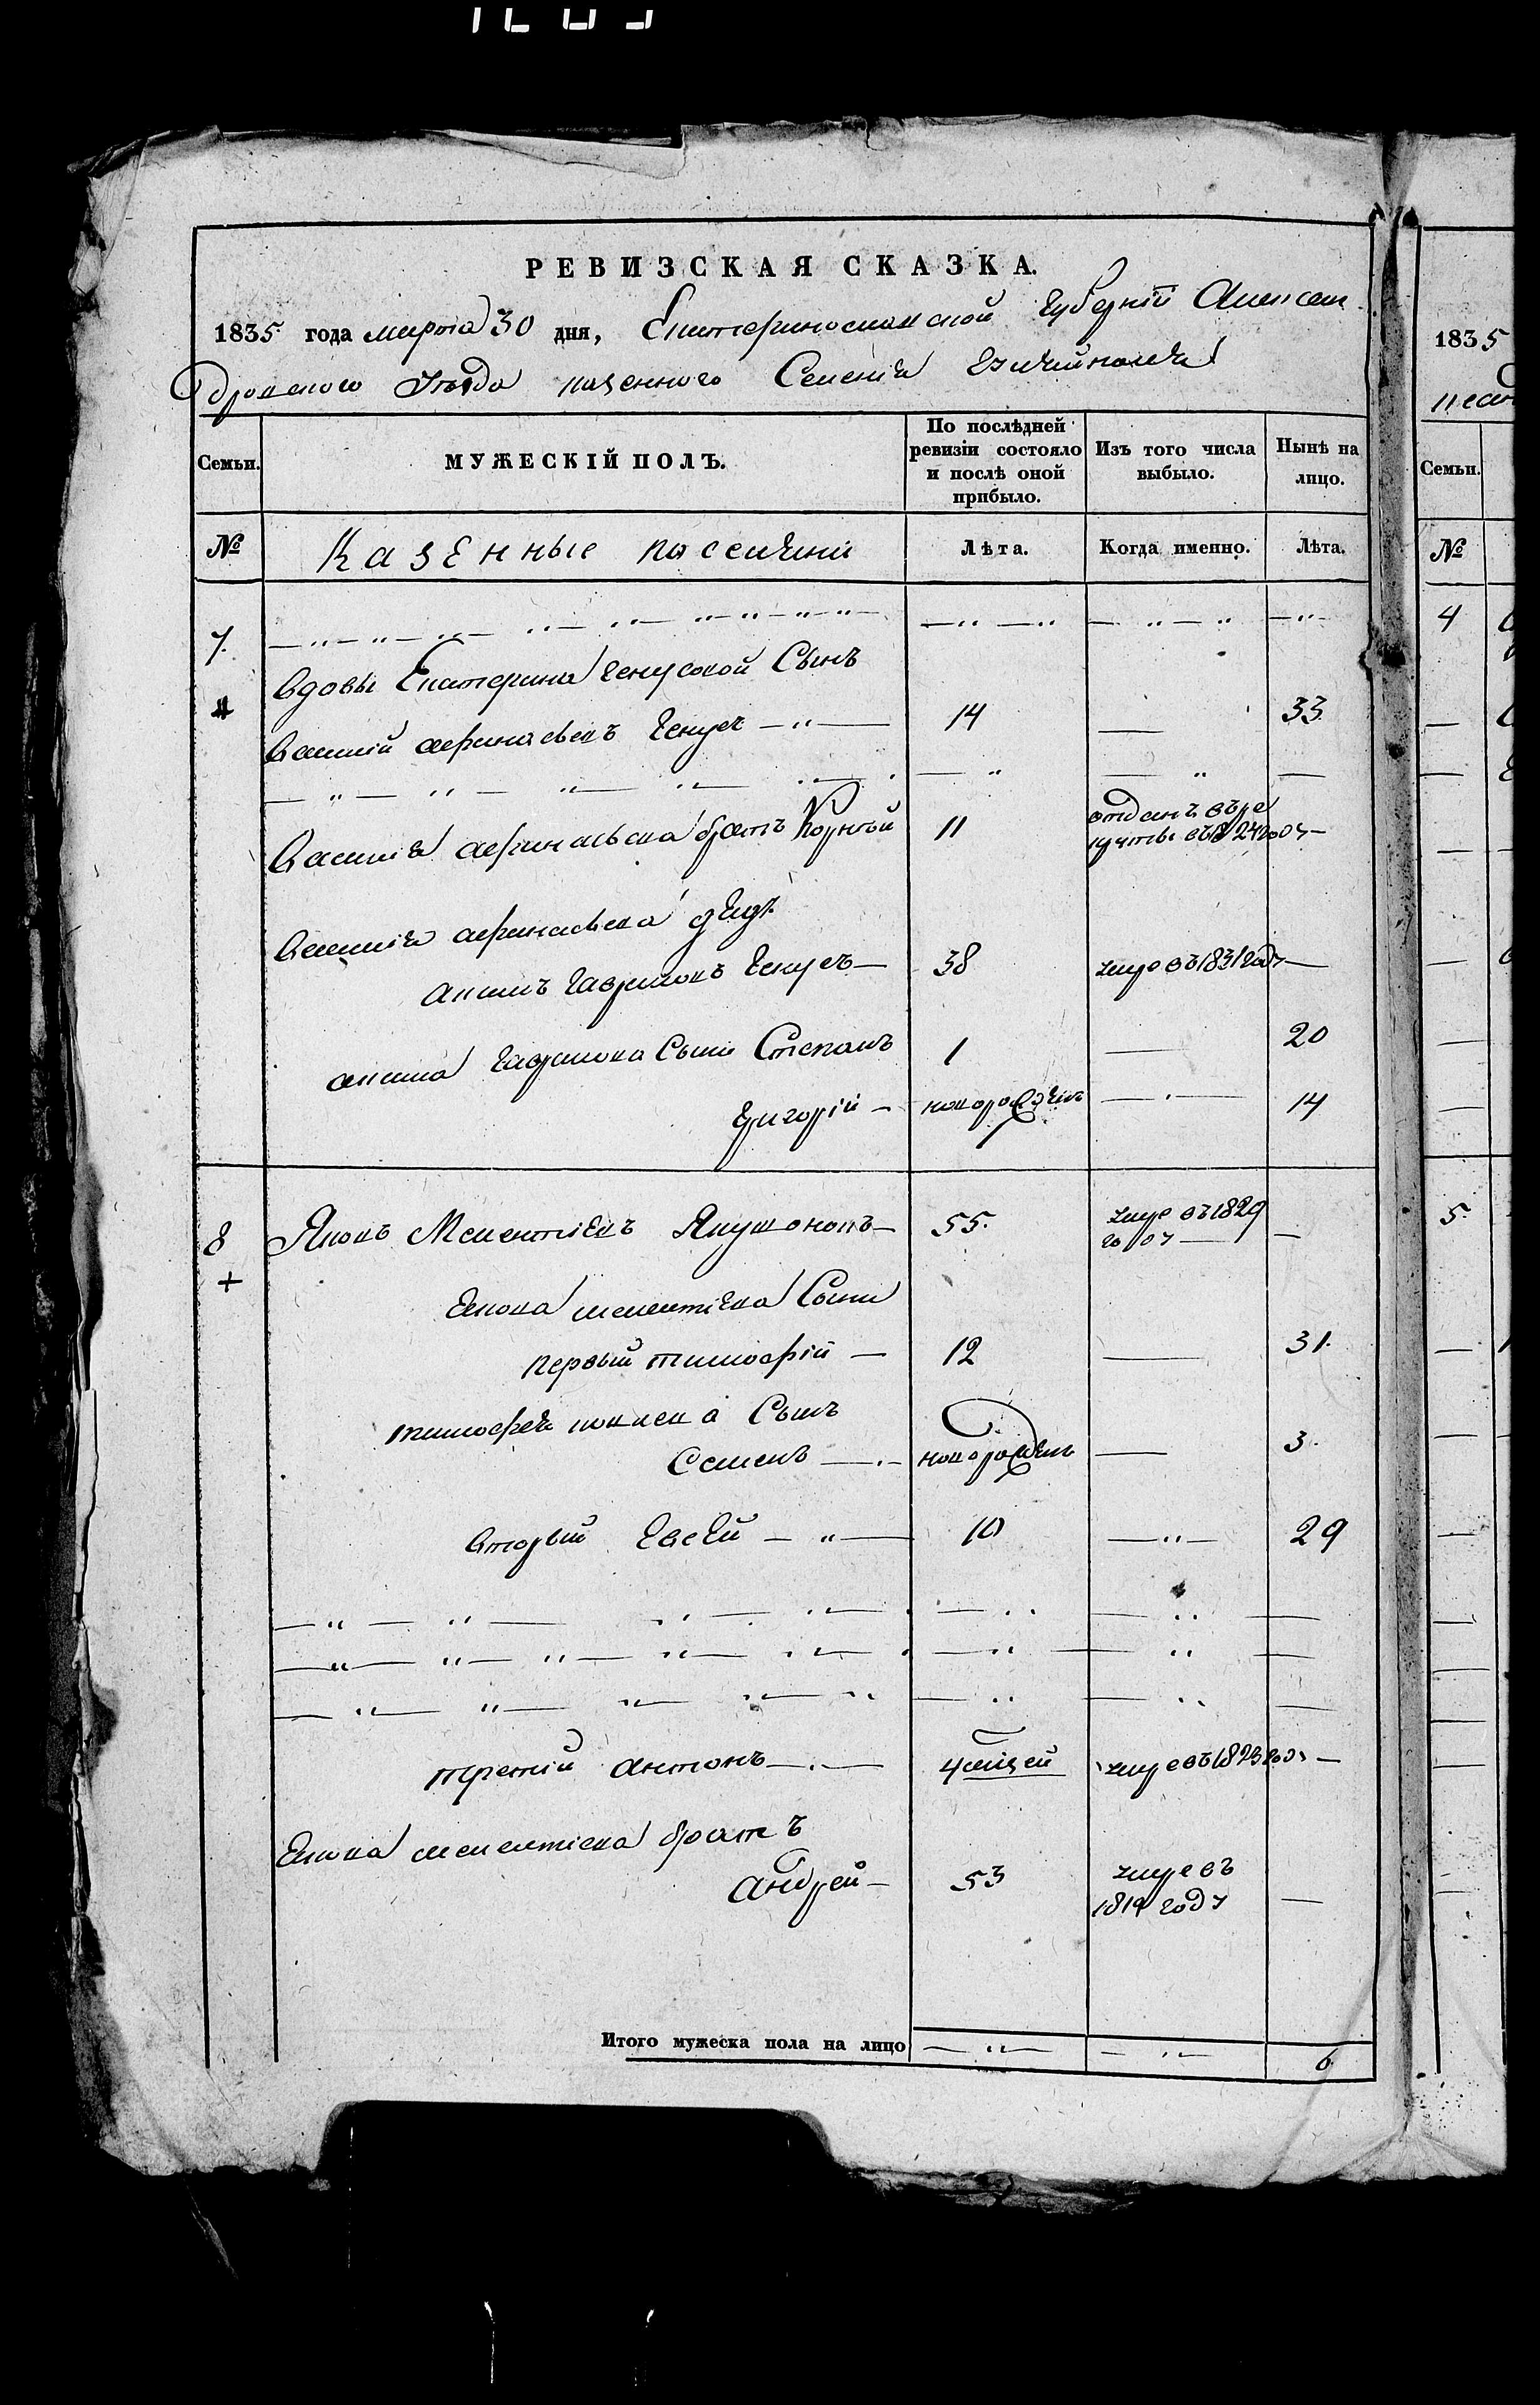 РЕВИЗСКАЯ СКАЗКА.
1835 года марта 30 дня, Екатеринославской губерніи Алексан
дровского уѣзда казенного Селенія
Семьи. МУЖЕСКІЙ ПОЛЪ. По послѣдней ревизіи состояло и послѣ оной прибыло. Изъ того числа выбыло. Нынѣ на лицо.
№ Казенные поселяни Лѣта. Когда именно. Лѣта.
7.
вдовы Екатерины Сынъ
Василій афанасьевъ 14 — 33
Василія афанасьева братъ Корнѣй 11 отданъ въ ре
круты въ 1824 году —
Василія афанасьева дядя
акимъ гавриловъ 38 умре въ 1831 году —
акима гаврилова Сыни Степанъ 1 — 20
григорій — новорожденъ — 14
8 Яковъ Мементіевъ Якушоновъ — 55. умре въ 1829
году — —
якова мементіева Сыни
первый тимофій — 12 — 31.
тимофея яковлева Сынъ
Семенъ — новорожденъ — 3.
вторый Евсей — 10 — 29
третій антонъ — 4 месяцей умре въ 1823 году —
якова мементіева братъ
андрей — 53 умре въ
1819 году —
Итого мужеска пола на лицо — — 6
1835
Семьи.
№
4
5.